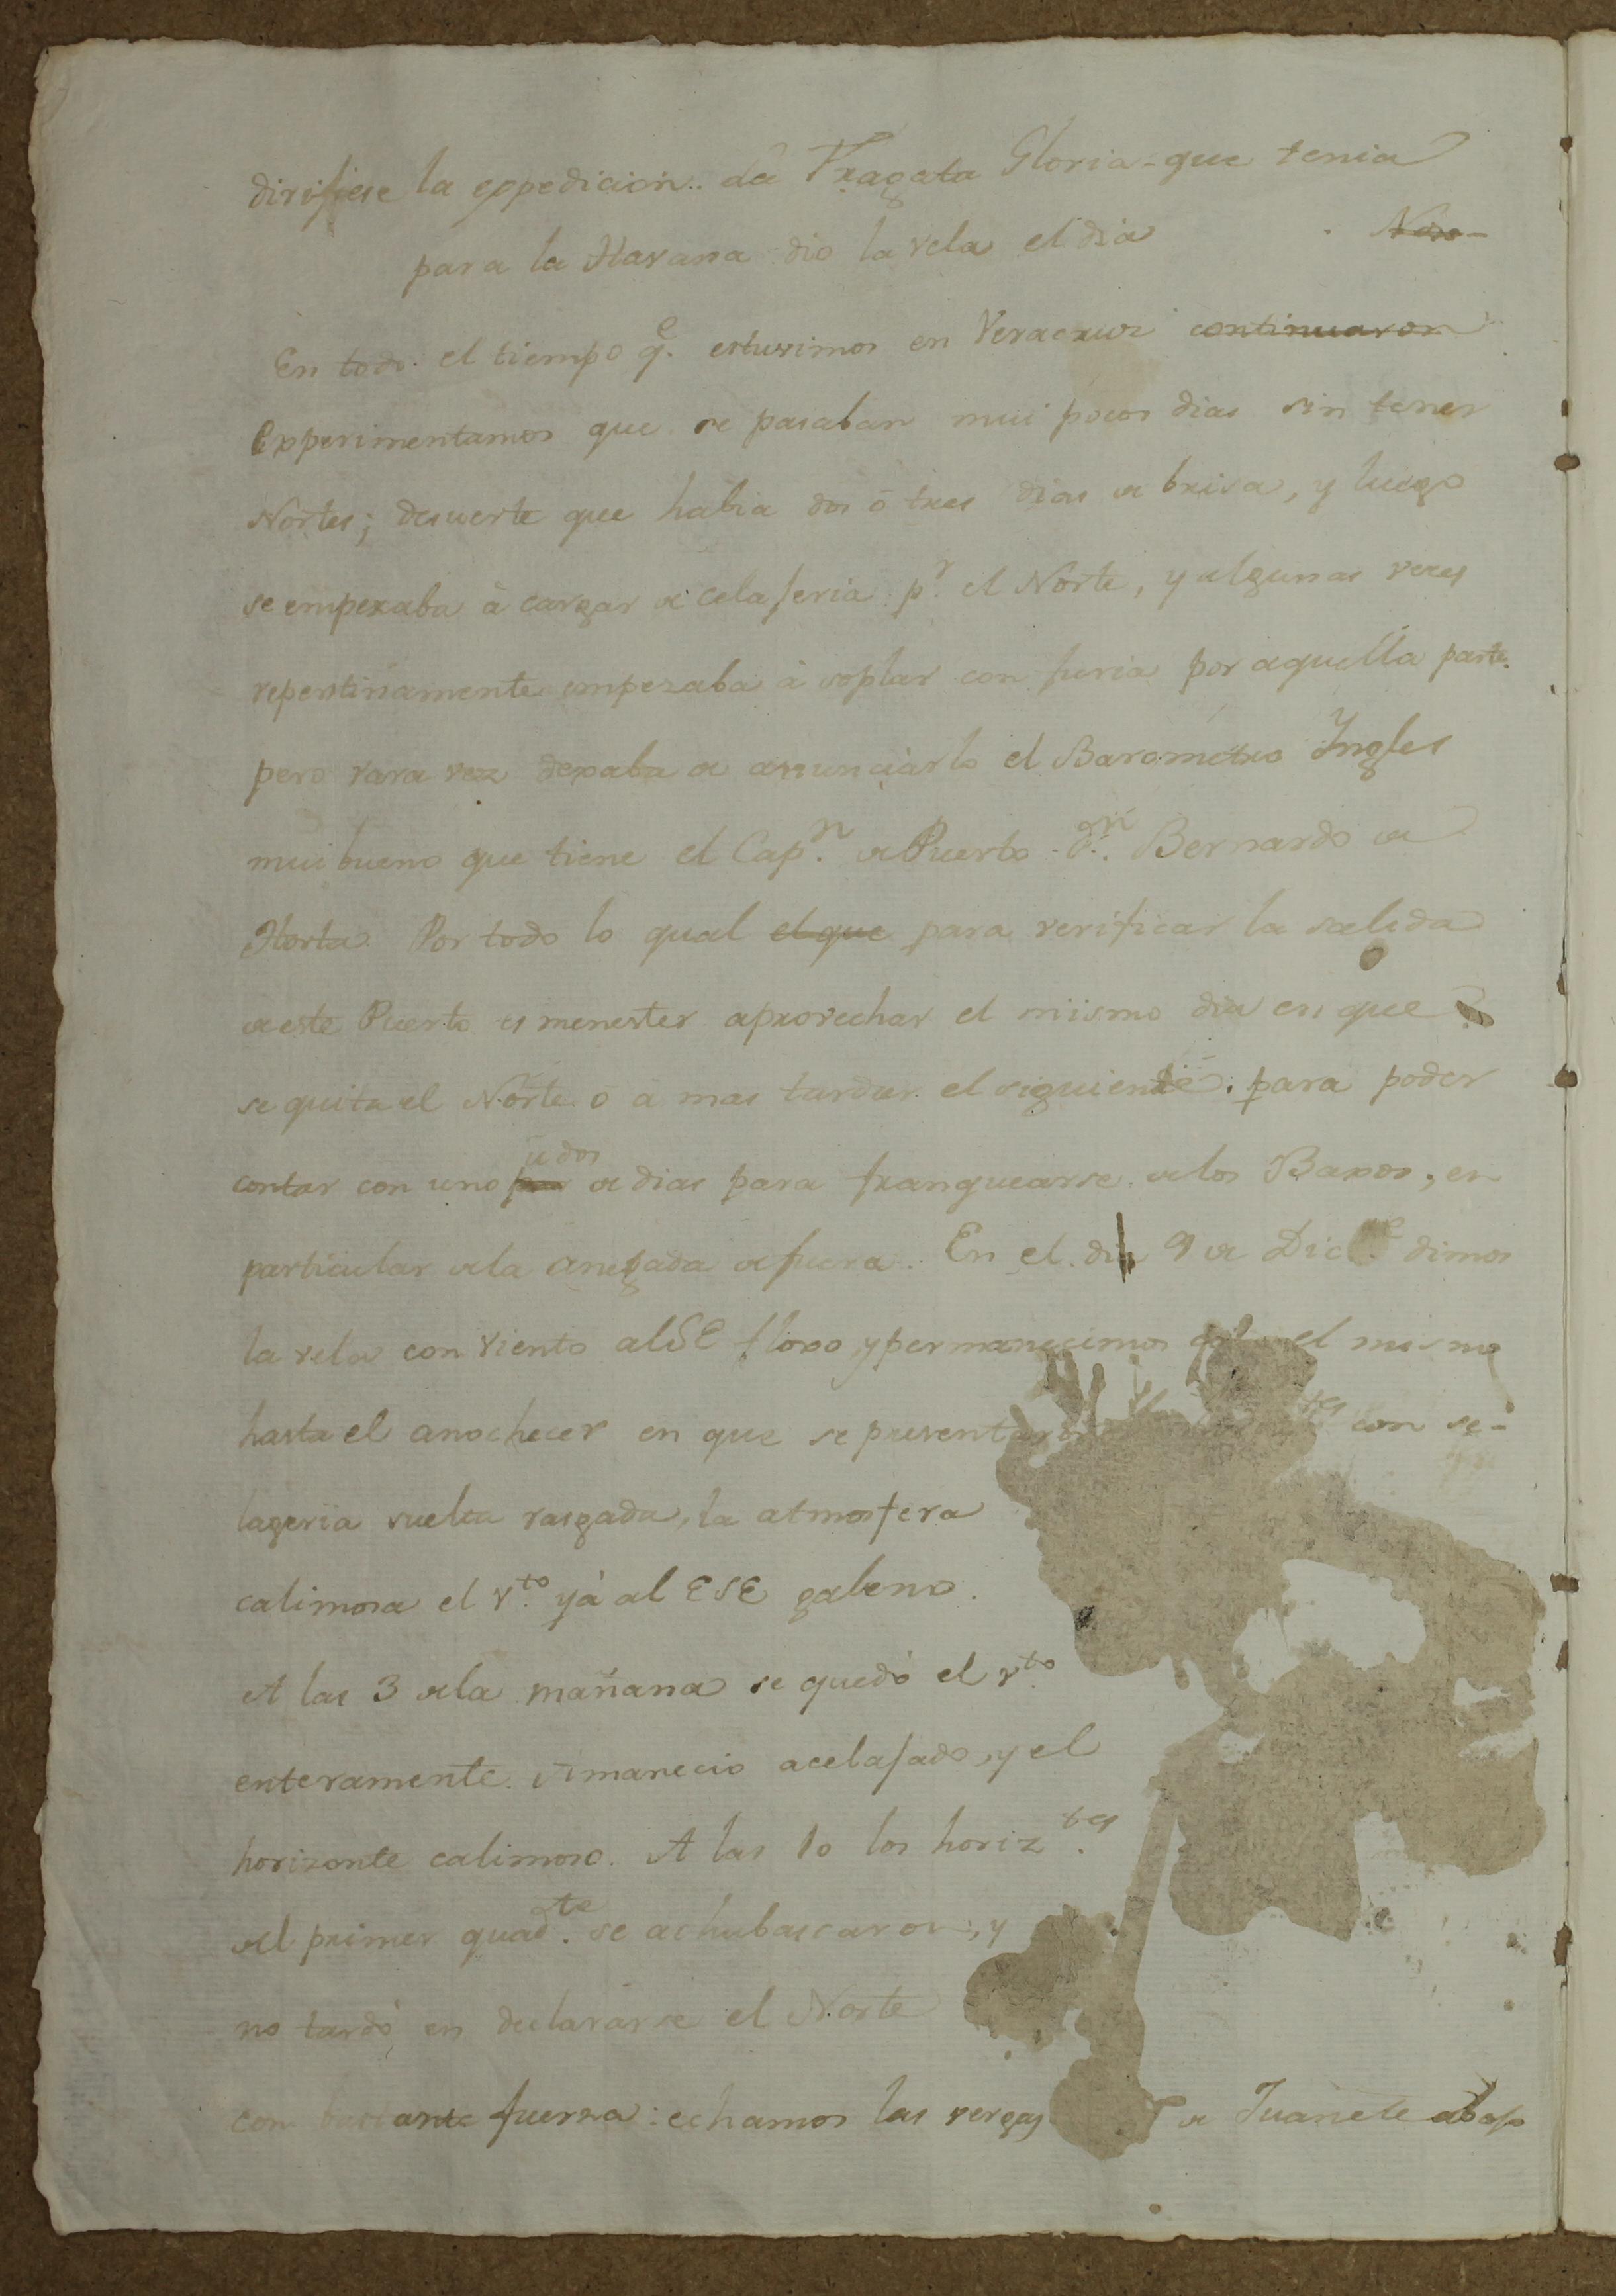 dirijiese la expedicion. La Fragata Gloria que tenia
para la Havana dio la vela el dia Nov
En todo el tiempo q.e estuvimos en Veracruz continuaron
experimentamos que se pasaban mui pocos dias sin tener
Nortes; desuerte que habia dos ó tres dias de brisa, y luego
se empezaba à cargar de celajeria p.r el Norte, y algunas veces
repentinamente empezaba à soplar con furia por aquella parte.
pero rara vez dexaba de anunciarlo el Barometro Yngles
mui bueno que tiene el Cap.n de Puerto D.n Bernardo de
Horta. Por todo lo qual el que para verificar la salida
de este Puerto es menester aprovechar el mismo dia en que
se quita el Norte ó à mas tardar el siguiente. para poder
contar con uno par ú dos de dias para franquearse de los Baxos, en
particular de la anegada de fuera. En el dia 9 de Dic.re dimos
la vela con viento al SE floxo, y permanecimos el mismo
hasta el anochecer en que se presentaron tes con se-
lageria suelta rasgada, la atmosfera
calimosa el v.to yá al ESE galeno.
A las 3 de la mañana se quedó el v.to
enteramente. Amanecio acelajado, y el
horizonte calimoso. A las 10 los horiz.tes
del primer quad.te se achubascaron, y
no tardó en declararse el Norte
con bastante fuerza: echamos las vergas de Juanete abajo